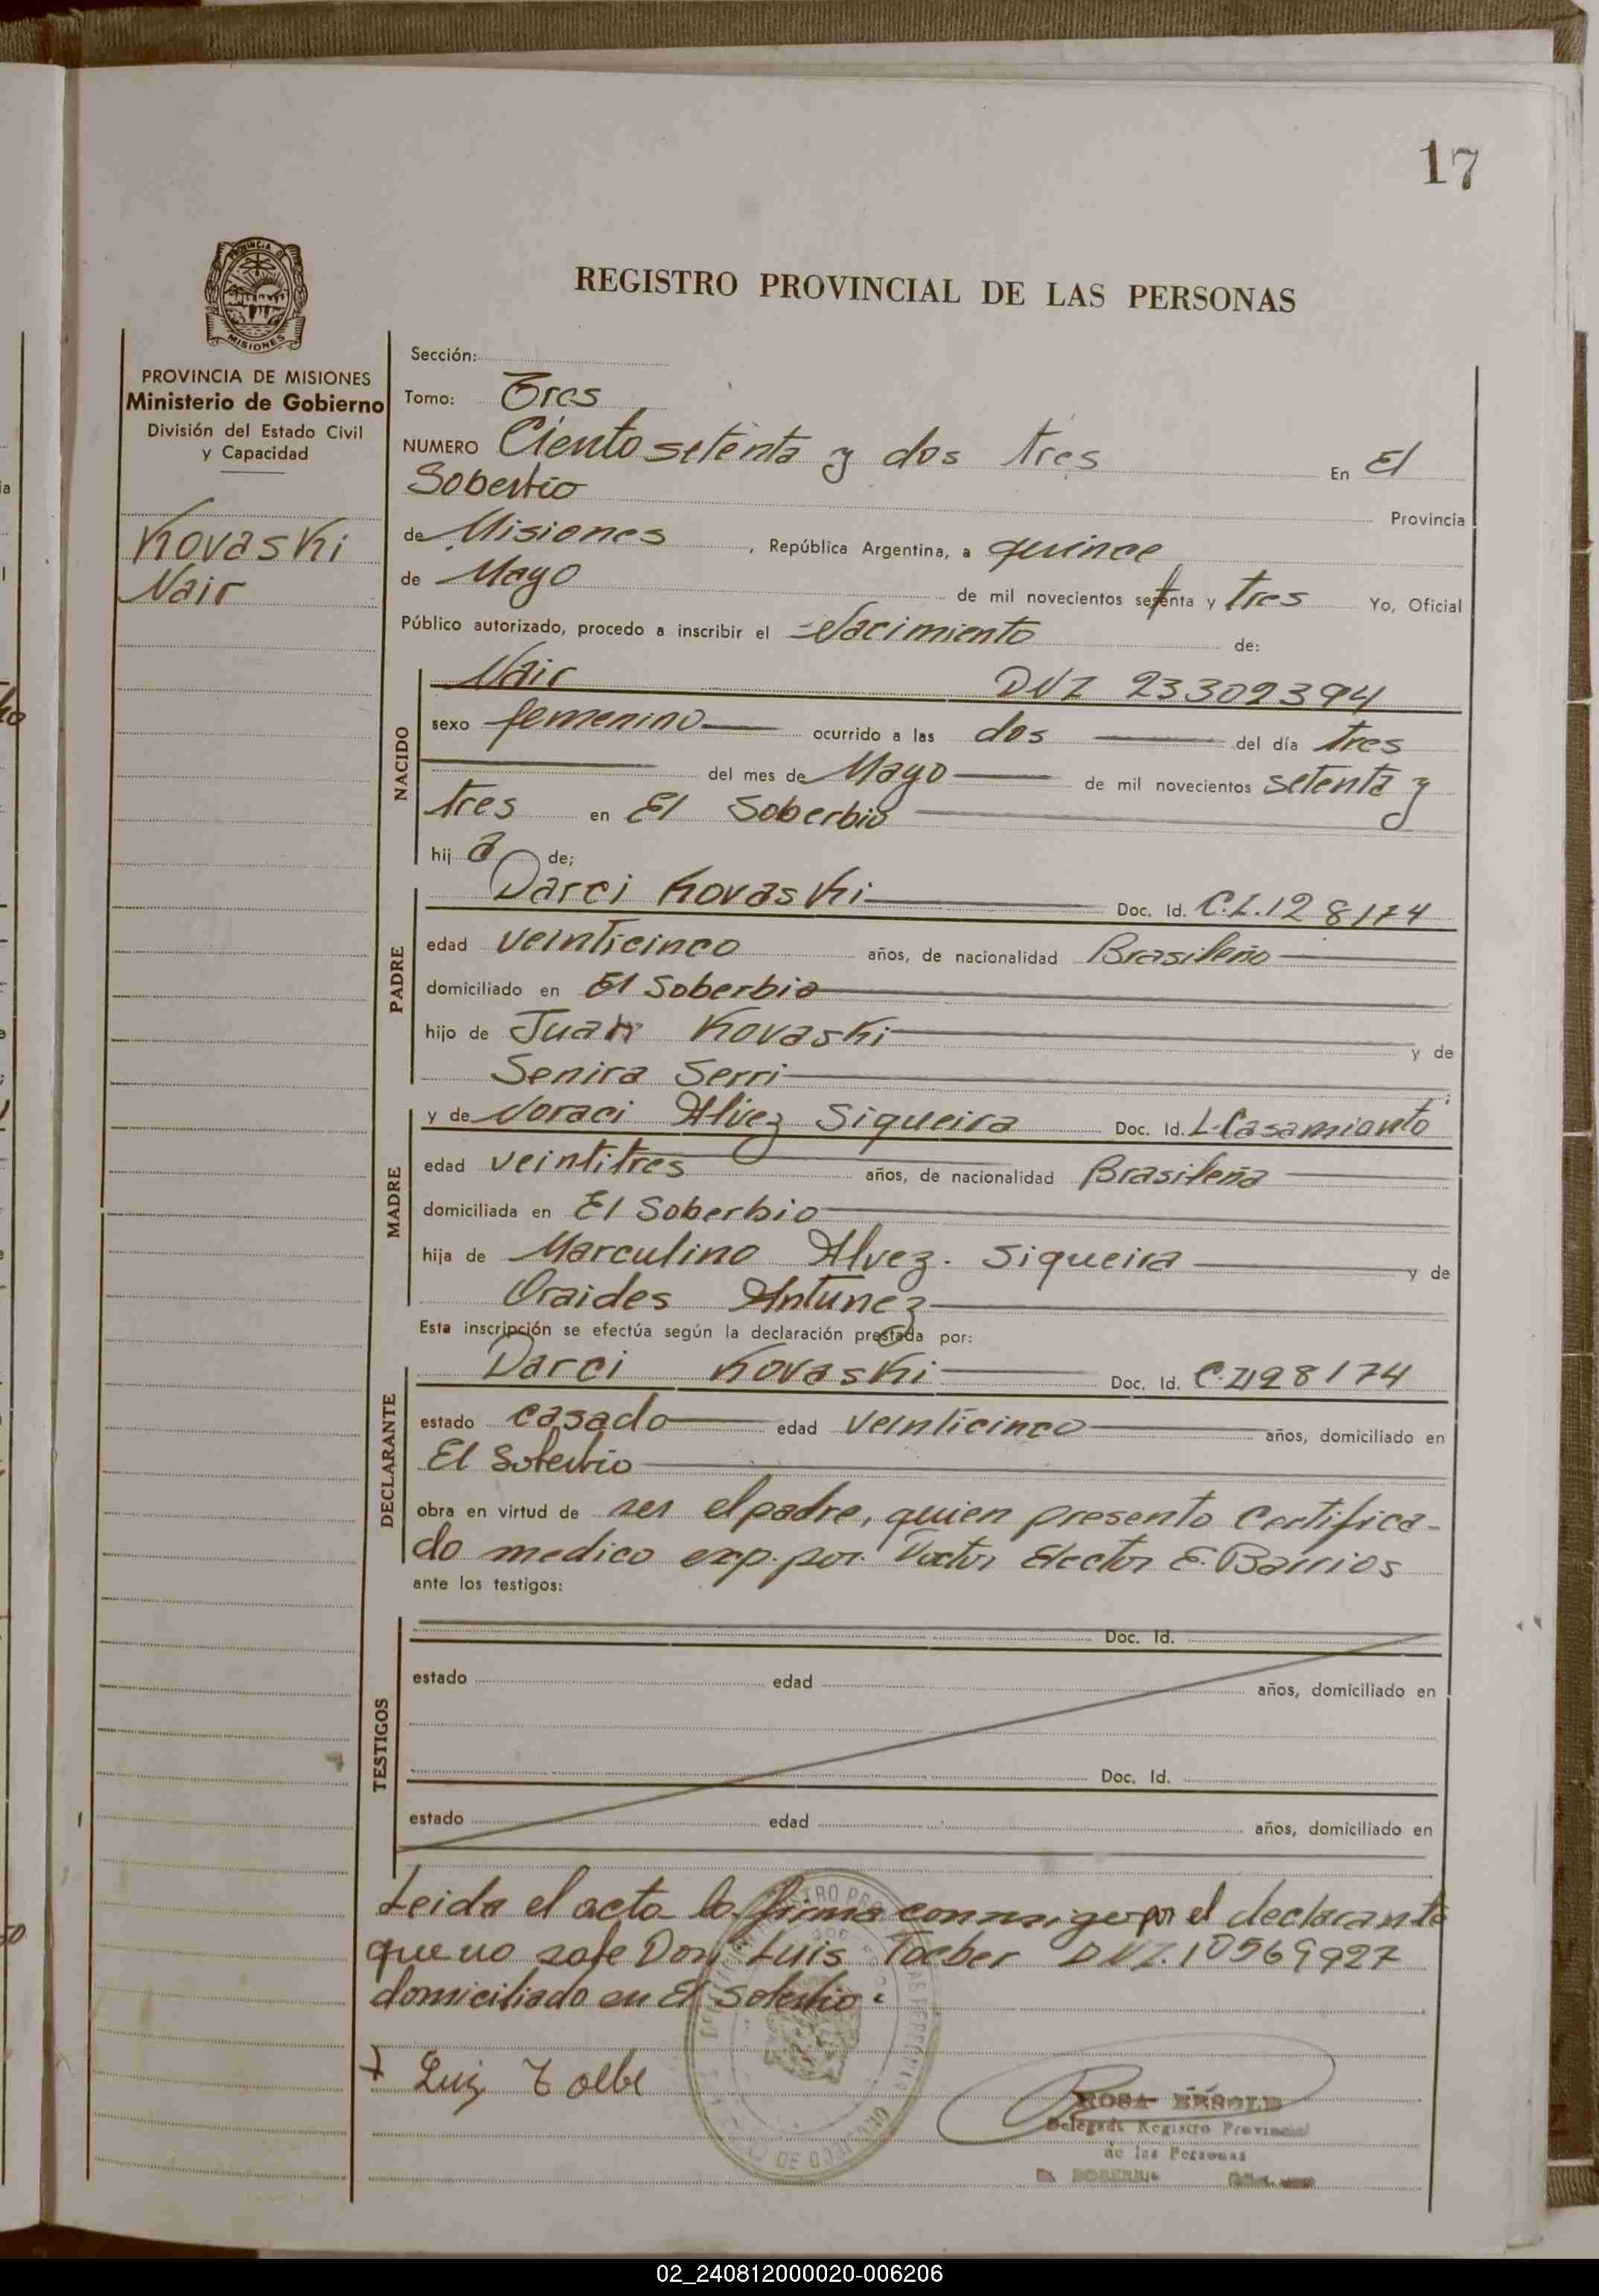 17
PROVINCIA DE
MISIONES
REGISTRO PROVINCIAL DE LAS PERSONAS
PROVINCIA DE MISIONES
Ministerio de Gobierno
División del Estado Civil
y Capacidad
Kovaski
Nair
Sección:
Tomo: Tres
NUMERO Ciento setenta y dos tres En El
Soberbio
Provincia
de Misiones, República Argentina, a quince
de Mayo de mil novecientos setenta y tres Yo, Oficial
Público autorizado, procedo a inscribir el Nacimiento de:
NACIDO
Nair DNI 23302394
sexo femenino ocurrido a las dos del día tres
del mes de Mayo de mil novecientos setenta y
tres en El Soberbio
hij a de;
PADRE
Darci Kovaski Doc. Id. C.I.128174
edad veinticinco años, de nacionalidad Brasileño
domiciliado en El Soberbio
hijo de Juan Kovaski y de
Senira Serri
MADRE
y de Noraci Alvez Siqueira Doc. Id. L.Casamiento
edad veintitres años, de nacionalidad Brasileña
domiciliada en El Soberbio
hija de Marculino Alvez. Siqueira y de
Oraides Antunez
Esta inscripción se efectúa según la declaración prestada por:
DECLARANTE
Darci Kovaski Doc. Id. C.I128174
estado casado edad veinticinco años, domiciliado en
El Soberbio
obra en virtud de ser el padre, quien presento Certifica-
do medico exp. por Doctor Hector E. Barrios
ante los testigos:
TESTIGOS
Doc. Id.
estado edad años, domiciliado en
Doc. Id.
estado edad años, domiciliado en
Leida el acta la firma conmigo por el declarante
que no sabe Don Luis Toeber DNI.10569927
domiciliado en El Soberbio.
Luiz Toelbe
ROSA
Delegada Registro Provincial
de las Personas
02_240812000020-006206